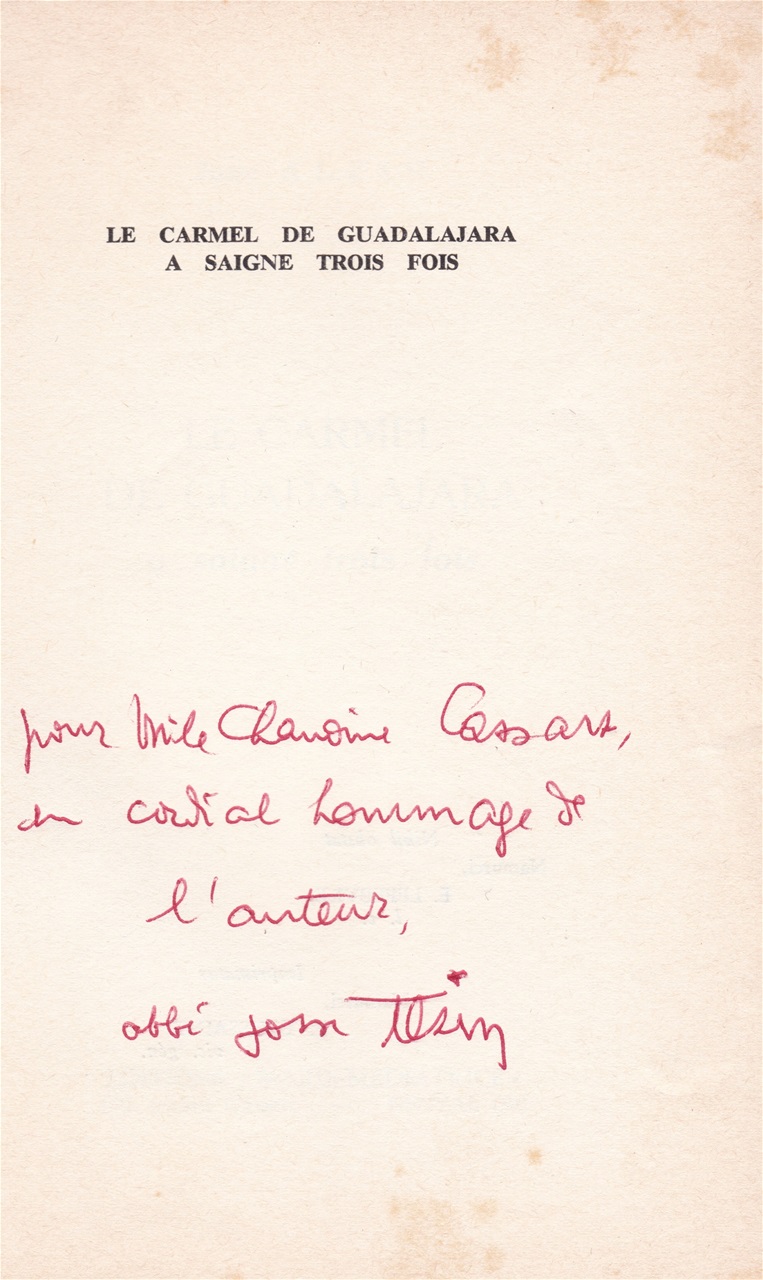 LE CARMEL DE GUADALAJARA
A SAIGNE TROIS FOIS
pour Chanoine Cassart,
en cordial hommage de
l'auteur,
abbé